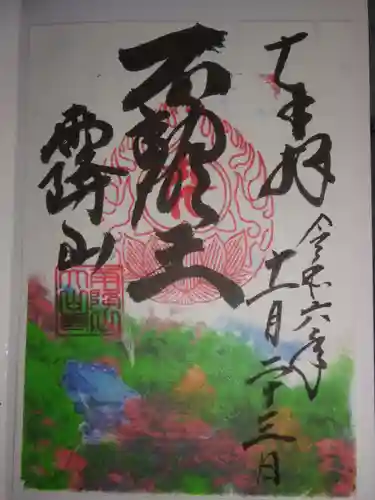 奉拝
令和六年
十一月二十三日
不動王
雨降山